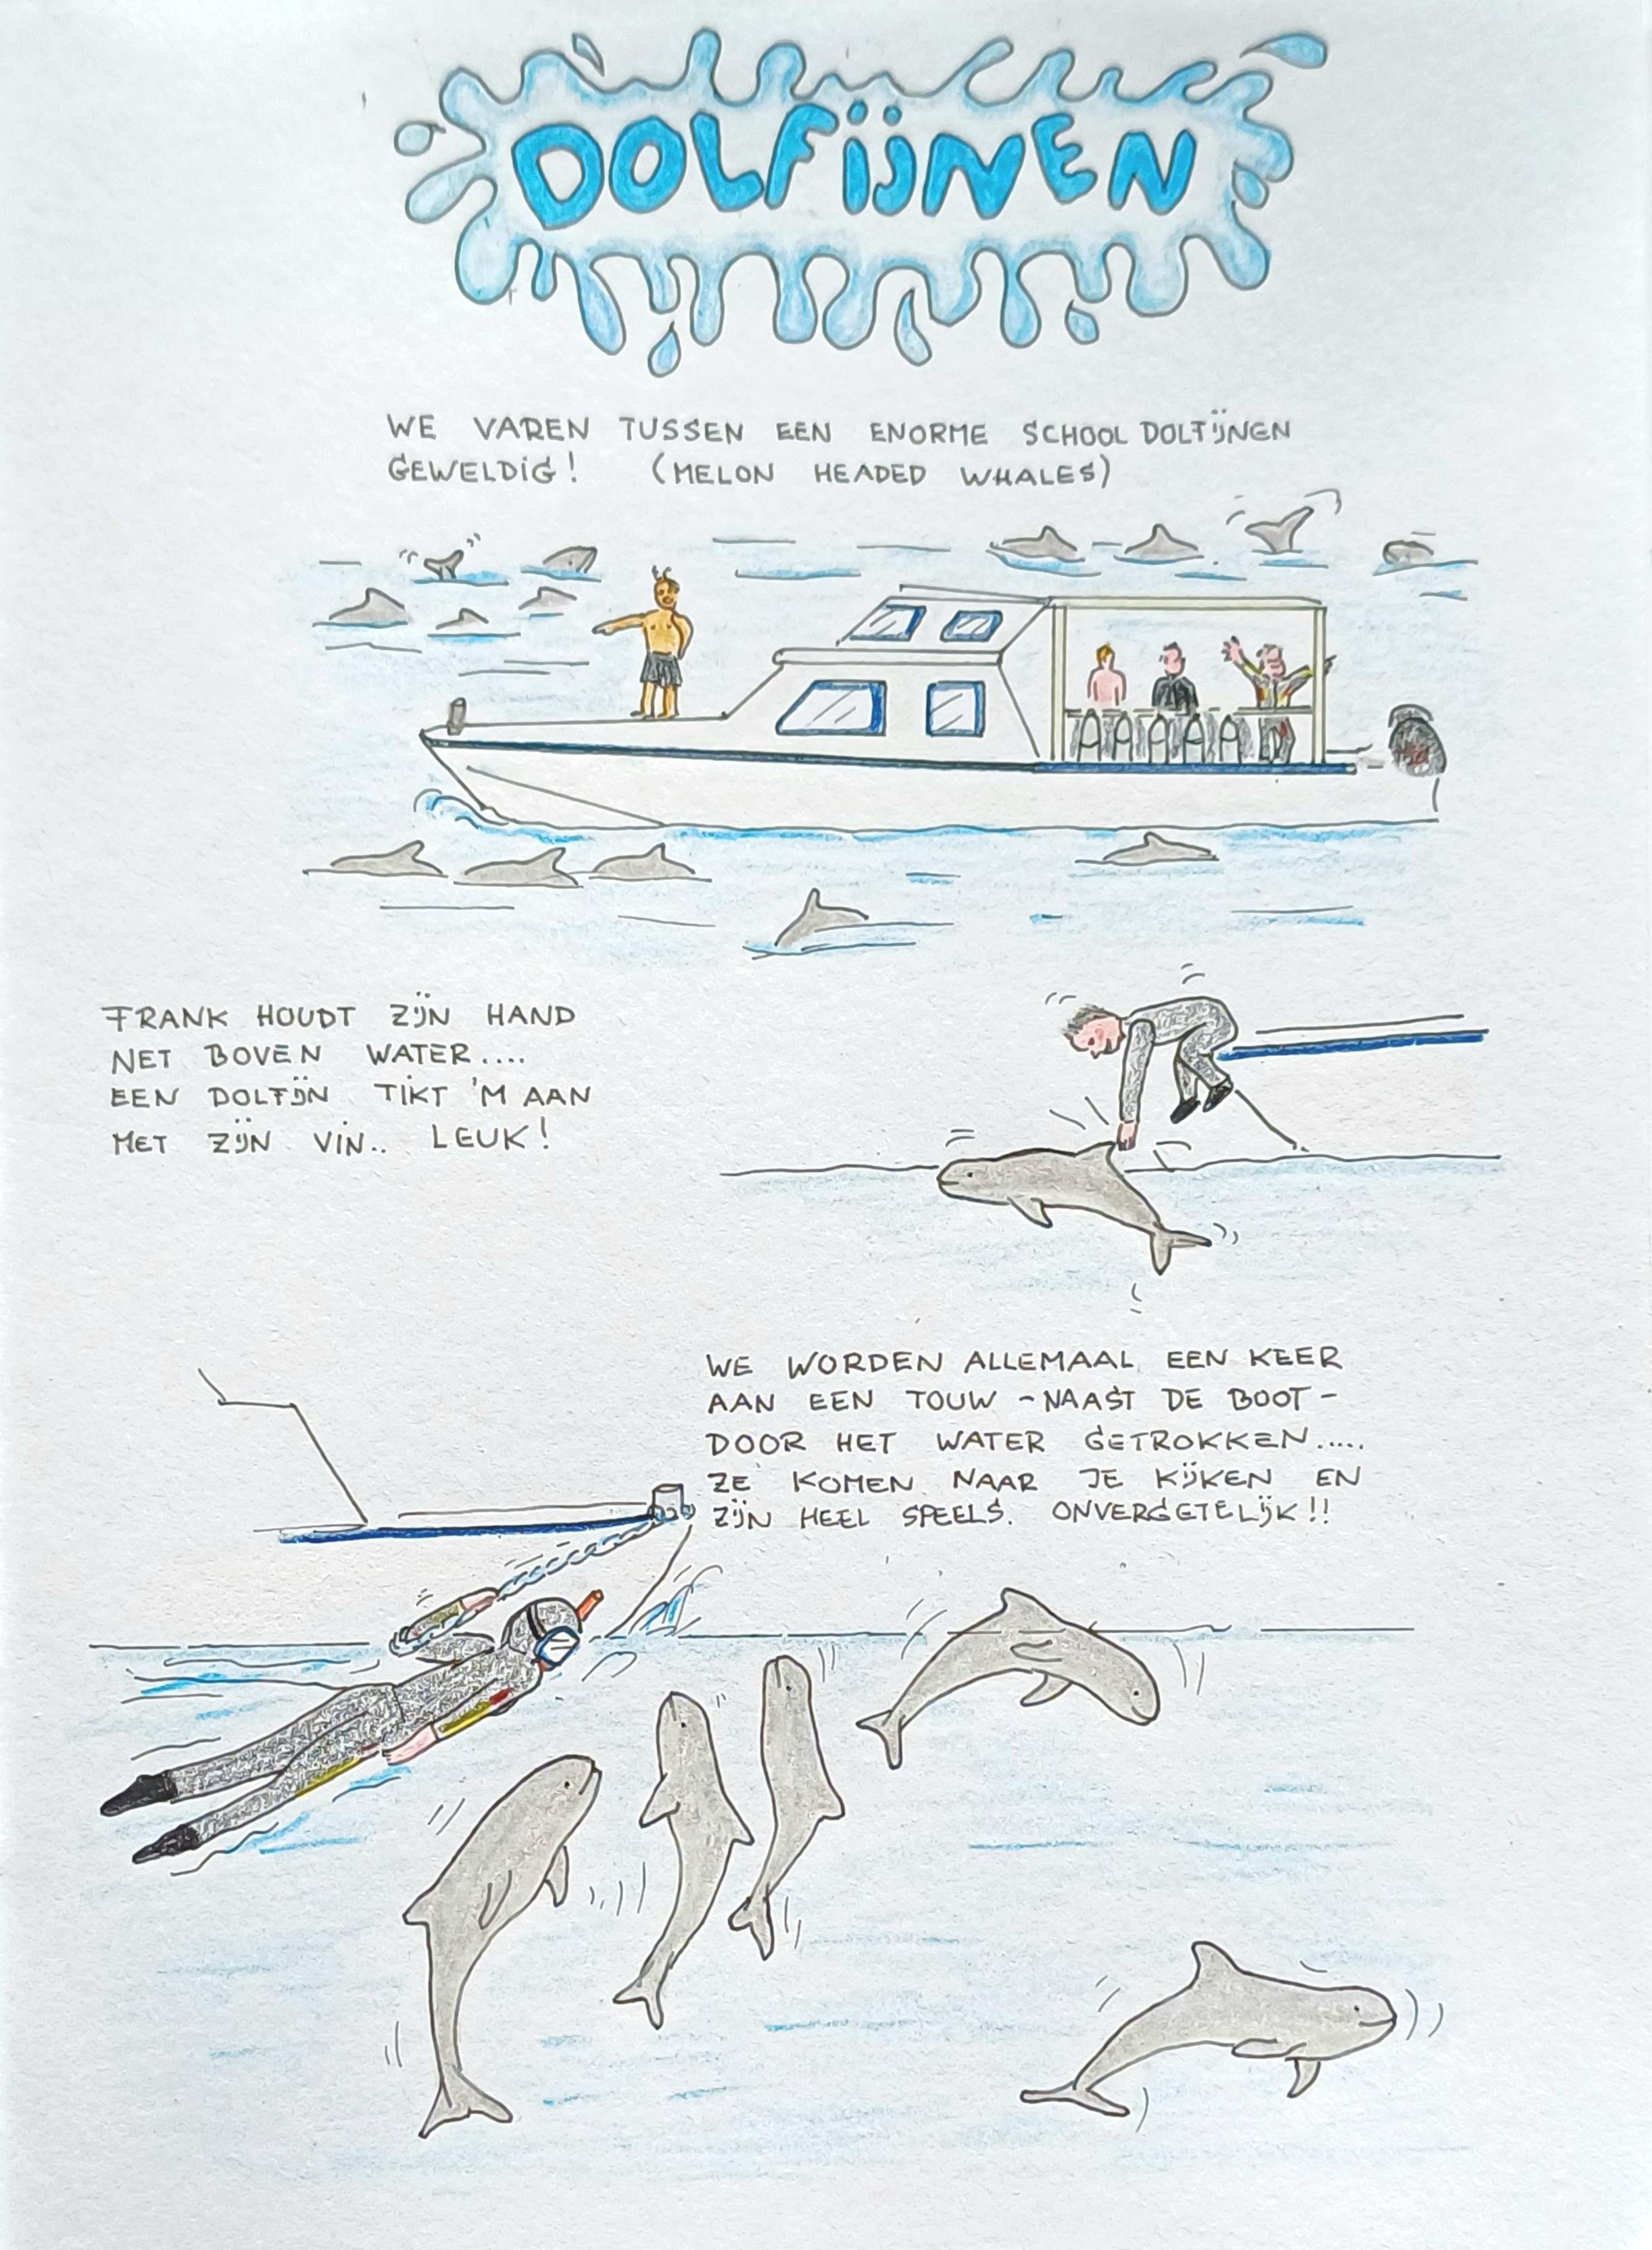 DOLFIJNEN
WE VAREN TUSSEN EEN ENORME SCHOOL DOLFIJNEN
GEWELDIG! (MELON HEADED WHALES)
FRANK HOUDT ZIJN HAND
NET BOVEN WATER....
EEN DOLFIJN TIKT 'M AAN
MET ZIJN VIN.. LEUK!
WE WORDEN ALLEMAAL EEN KEER
AAN EEN TOUW - NAAST DE BOOT -
DOOR HET WATER GETROKKEN.....
ZE KOMEN NAAR JE KIJKEN EN
ZIJN HEEL SPEELS. ONVERGETELIJK!!